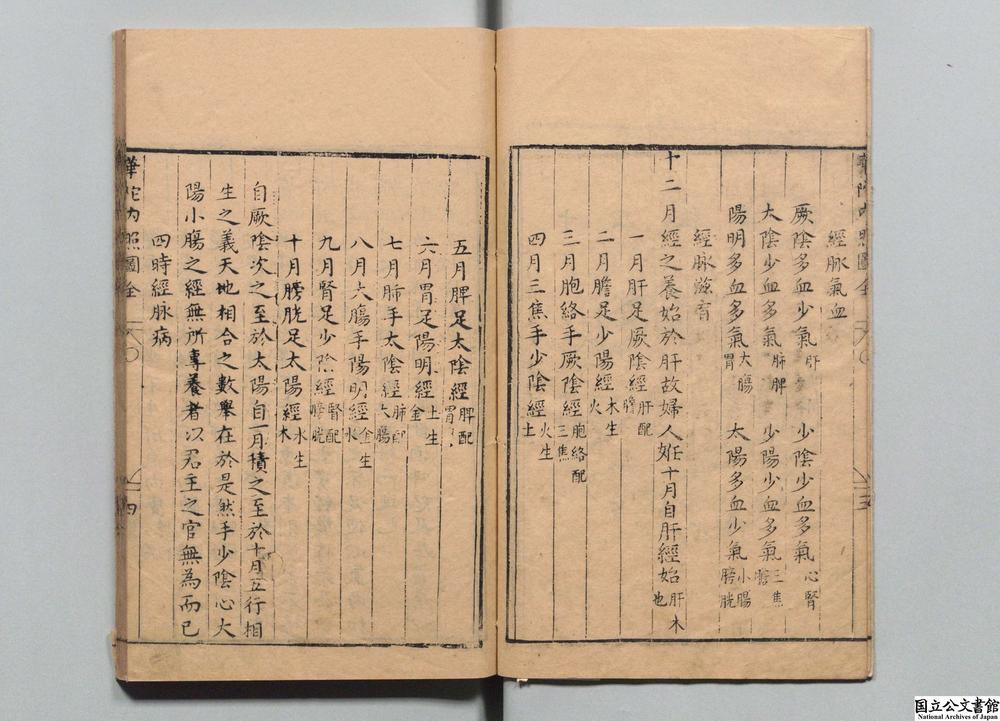 經脉氣血
厥陰多血少氣肝　少陰少血多氣心腎
太陰少血多氣肺脾　少陽少血多氣三焦膽
陽明多血多氣大腸胃　太陽多血少氣小腸膀胱
經脉滋育
十二月經之養始於肝故婦人姙十月自肝經始肝木也
一月肝足厥陰經肝配膽
二月膽足少陽經木生火
三月胞絡手厥陰經胞絡配三焦
四月三焦手少陰經火生土
五月脾足太陰經脾配胃
六月胃足陽明經土生金
七月肺手太陰經肺配大腸
八月大腸手陽明經金生水
九月腎足少陰經腎配膀胱
十月膀胱足太陽經水生木
自厥陰次之至於太陽自一月積之至於十月五行相
生之義天地相合之數舉在於是然手少陰心太
陽小腸之經無所專養者以君主之官無為而已
四時經脉病
華陀內照圖全
三
華陀內照圖全
四
国立公文書館
National Archives of Japan